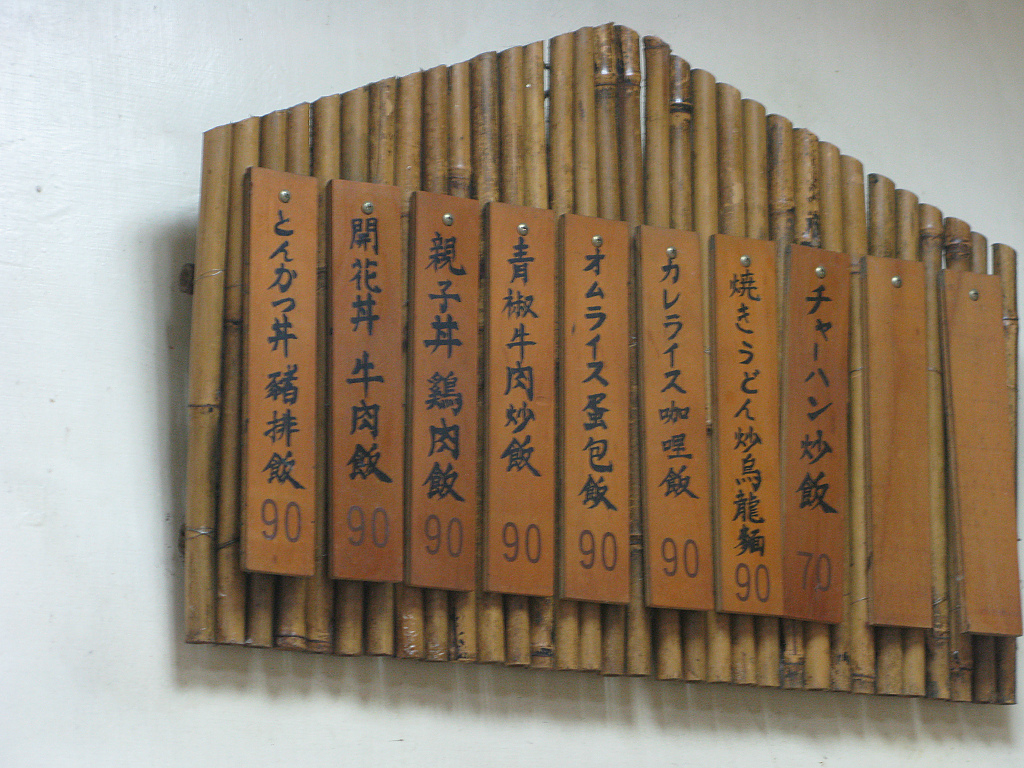 とんかつ丼 豬排飯 90
開花丼 牛肉飯 90
親子丼 鶏肉飯 90
青椒牛肉炒飯 90
オムライス蛋包飯 90
カレライス 咖哩飯 90
焼きうどん炒烏龍麵 90
チャーハン炒飯 70